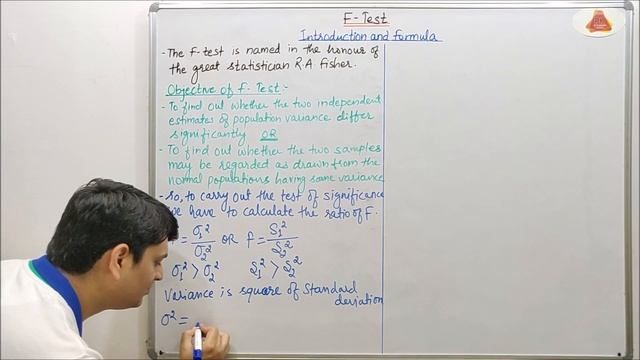 F-Test
Introduction and formula
- The F-test is named in the honour of
the great statistician R.A. Fisher.
Objective of F-Test:-
- To find out whether the two independent
estimates of population variance differ
significantly OR
- To find out whether the two samples
may be regarded as drawn from the
normal populations having same variance
- So, to carry out the test of significance
we have to calculate the ratio of F.
= σ₁²/σ₂² OR f = S₁²/S₂²
σ₁² > σ₂² S₁² > S₂²
Variance is square of standard
deviation
σ² =